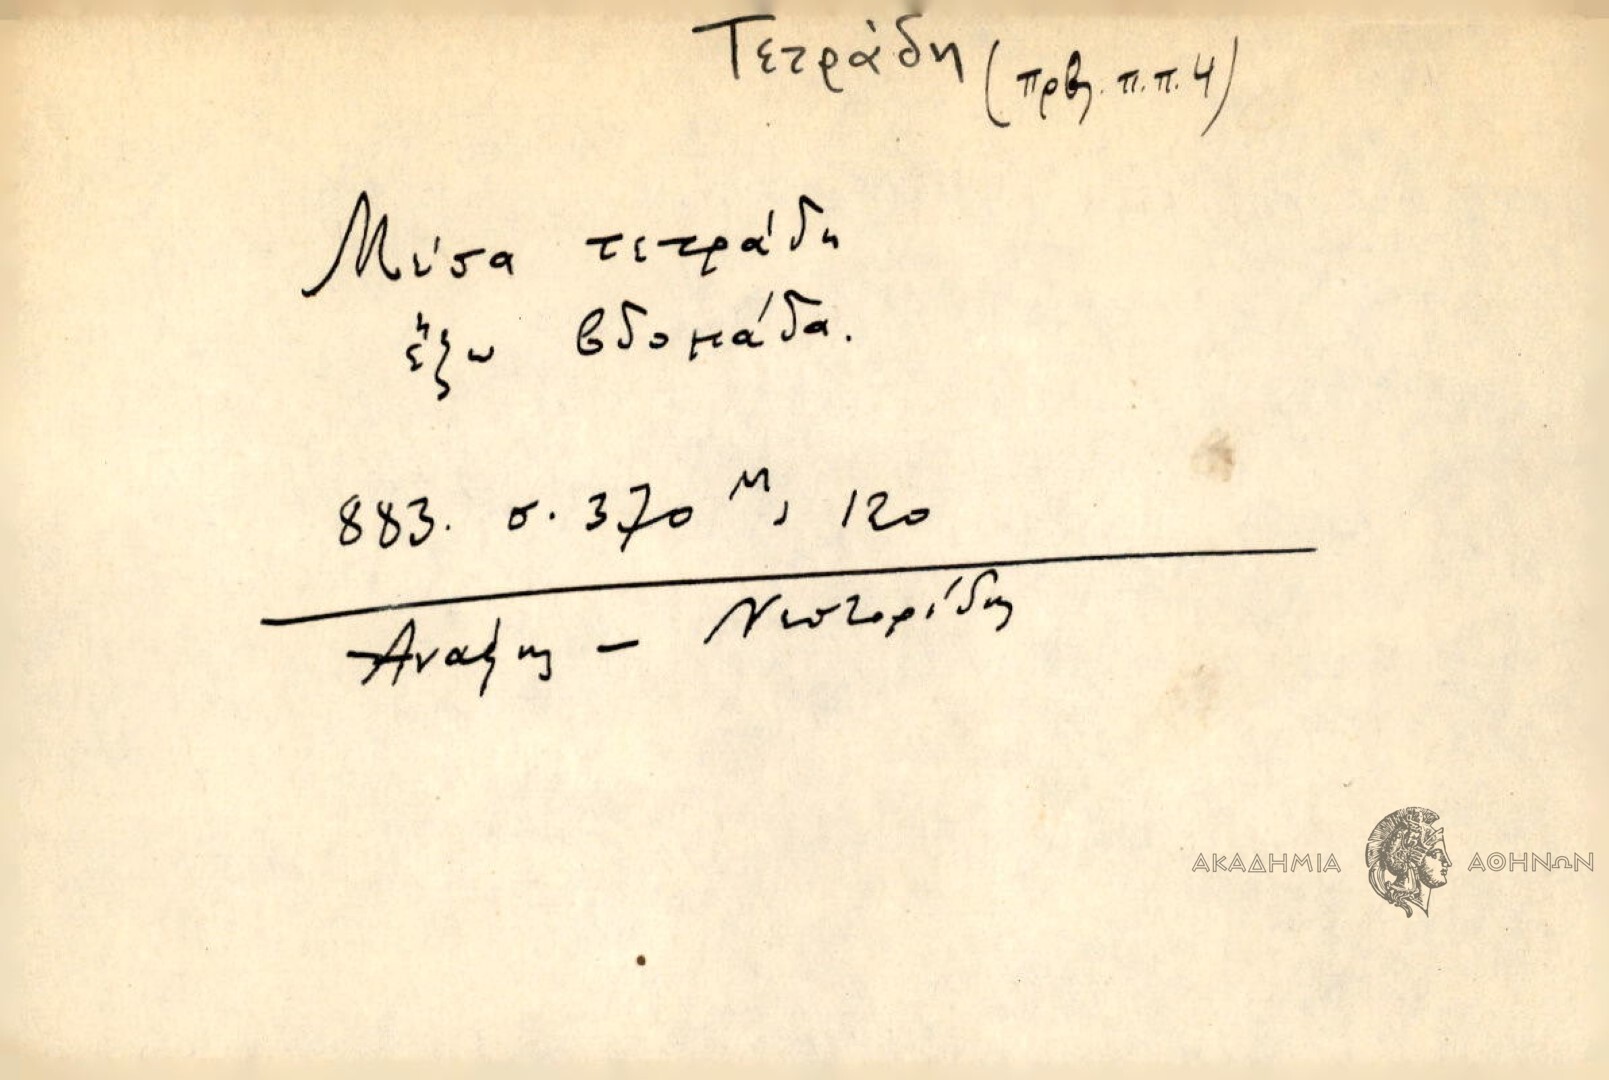 Τετράδη (πρβ. π.π. 4)
Μέσα τετράδη
ἔξω βδομάδα.
883. σ. 370 Μ, 120
Αναξης – Νεστορίδης
ΑΚΑΔΗΜΙΑ ΑΘΗΝΩΝ